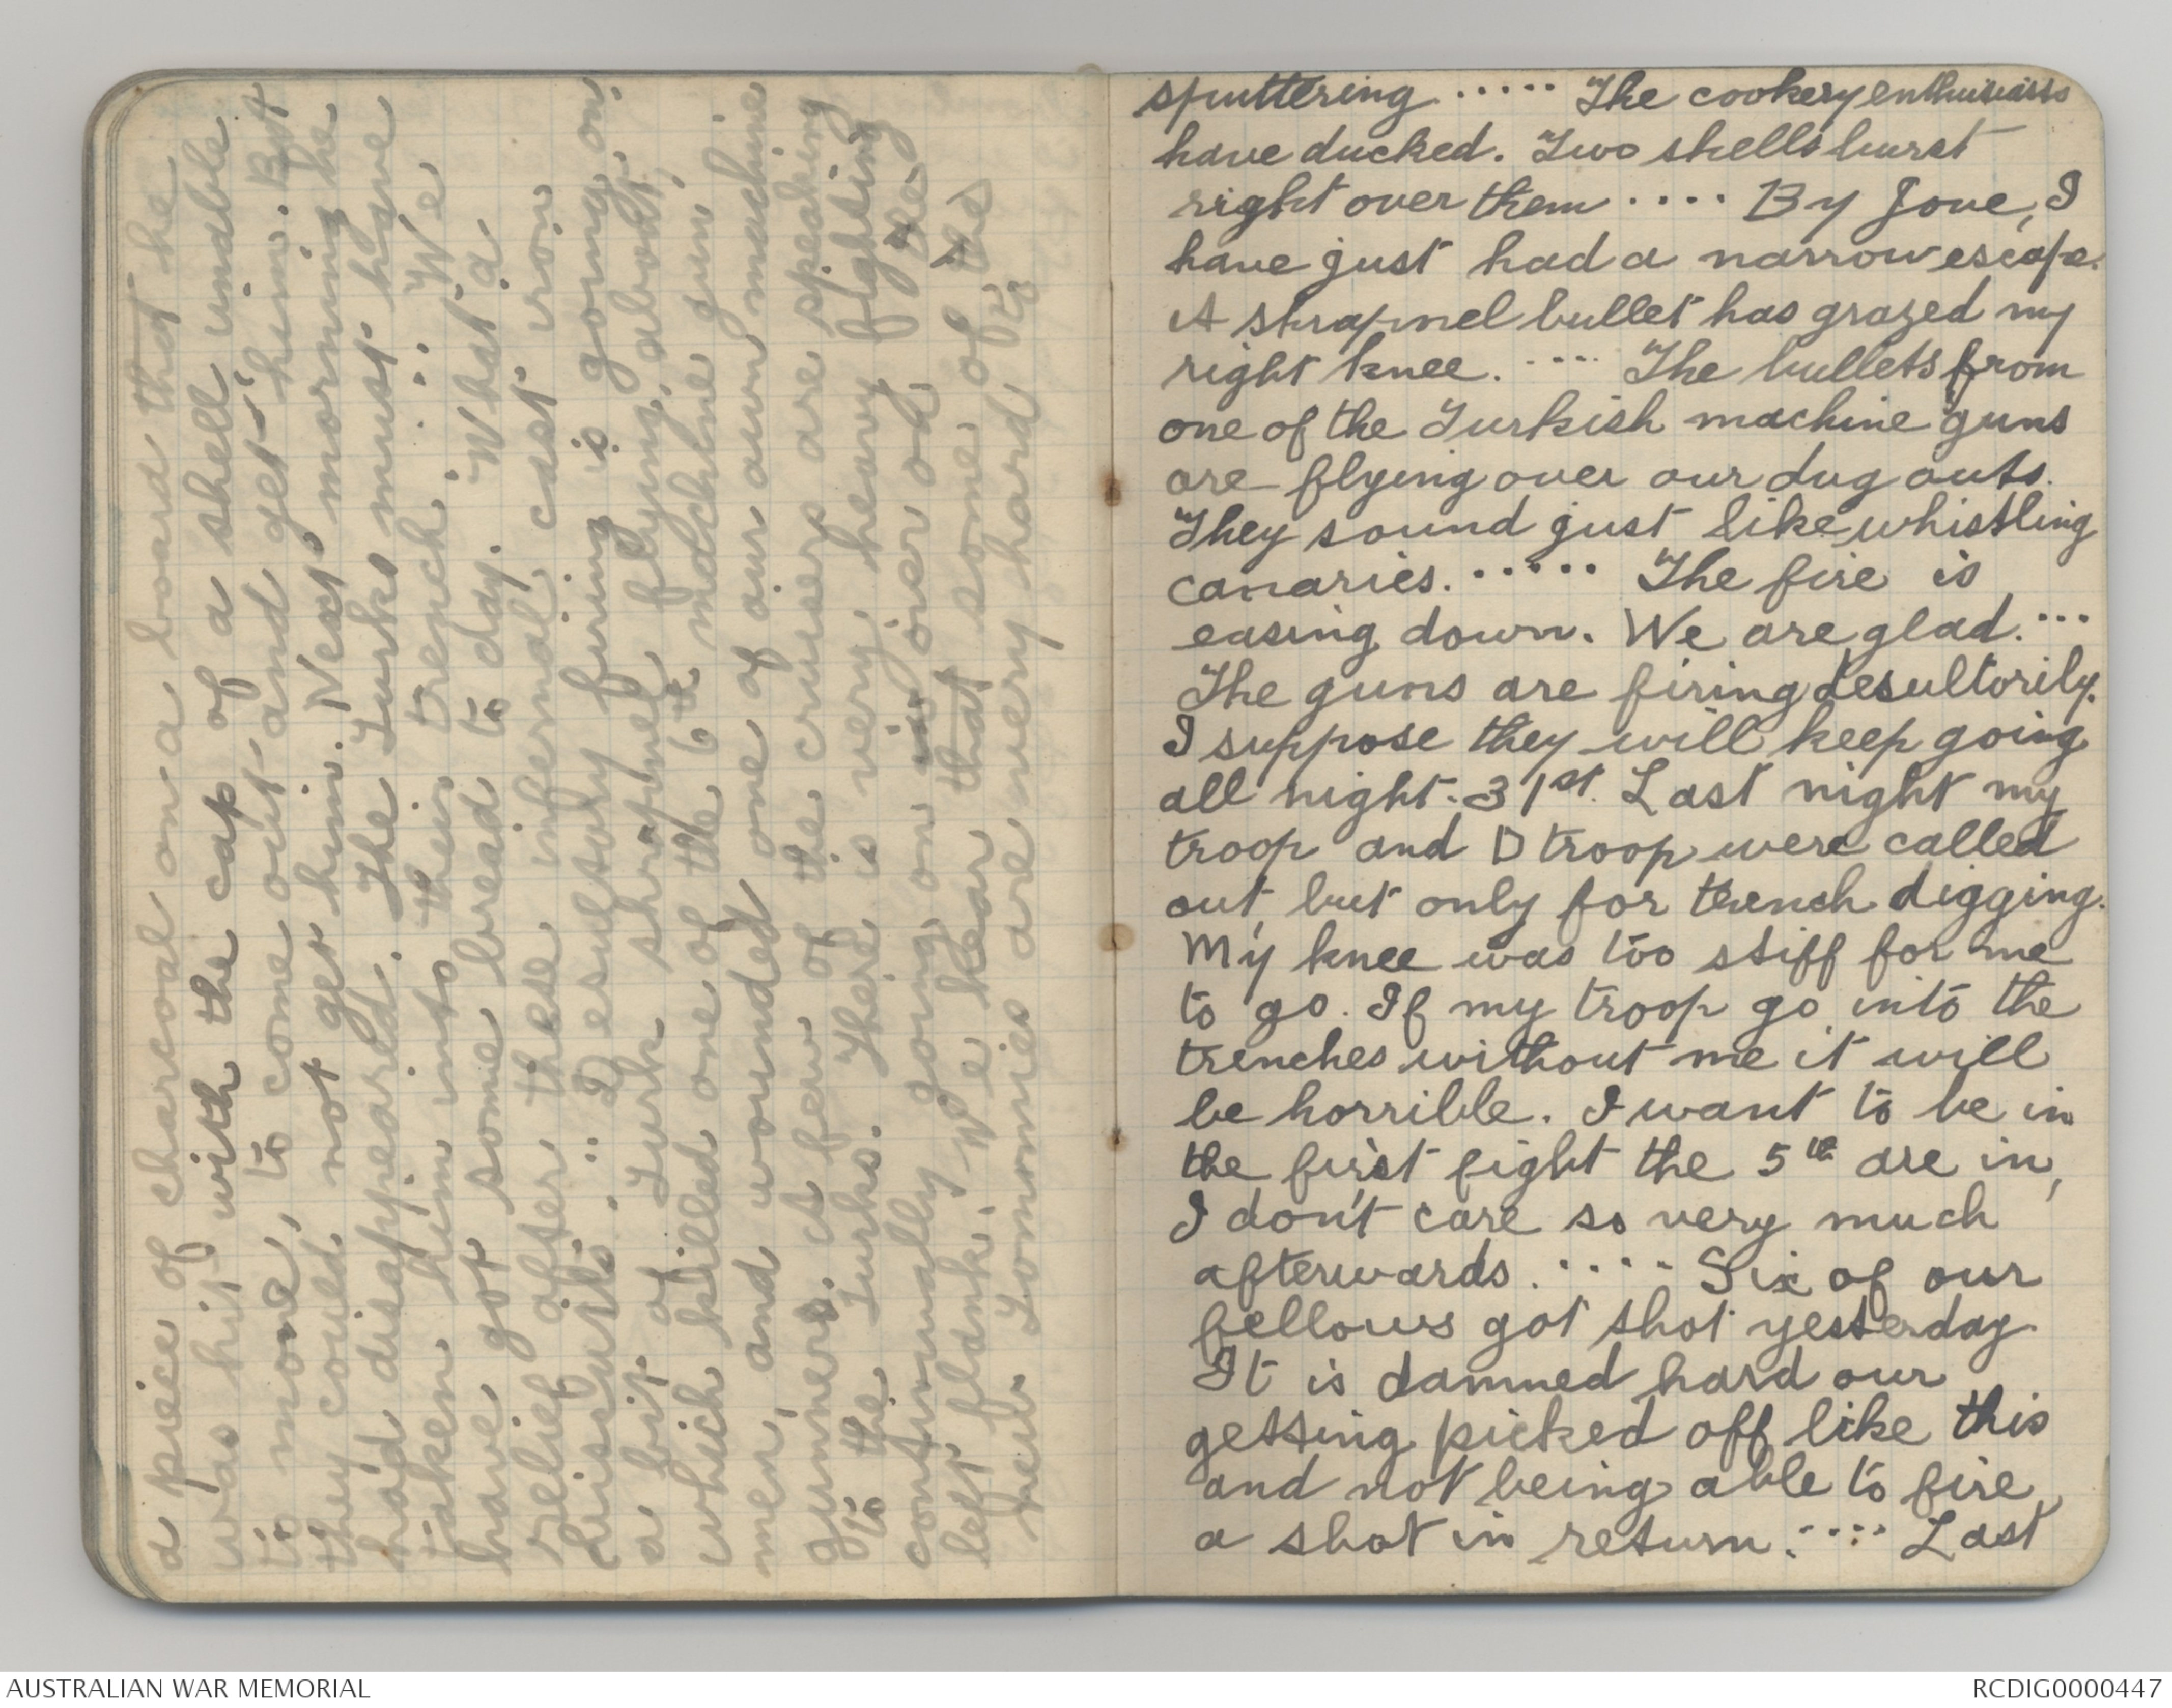 a piece of charcoal on a board that he
was hit with the cap of a shell unable
to move, to come out and get him. But
they could not get him. Next morning he
had disappeared. The Turks must have
taken him into their trench. .... We
have got some bread to day. What a
relief after these infernal cast iron
biscuits. .... Desultory firing is going on,
a bit of Turk shrapnel flying about,
which killed one of the 6th machine gun
men, and wounded one of our own machine
gunners. A few of the cruisers are speaking
to the Turks. There is very heavy fighting
continually going on over on the
left flank. We hear that some of the
new Tommies are very hard
sputtering ..... The cookery enthusiasts
have ducked. Two shells burst
right over them .... By Jove, I
have just had a narrow escape.
A shrapnel bullet has grazed my
right knee. .... The bullets from
one of the Turkish machine guns
are flying over our dug outs.
They sound just like whistling
canaries. ..... The fire is
easing down. We are glad. ...
The guns are firing desultorily.
I suppose they will keep going
all night. 31st. Last night my
troop and D troop were called
out, but only for trench digging.
My knee was too stiff for me
to go. If my troop go into the
trenches without me it will
be horrible. I want to be in
the first fight the 5th are in,
I don't care so very much
afterwards. .... Six of our
fellows got shot yesterday
It is damned hard our
getting picked off like this
and not being able to fire
a shot in return. .... Last
AUSTRALIAN WAR MEMORIAL
RCDIG0000447